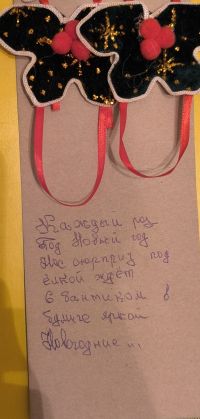 Каждый раз
Под Новый год
Нас сюрприз под
ёлкой ждёт
С бантиком в
бумаге яркой
Новогодние ...